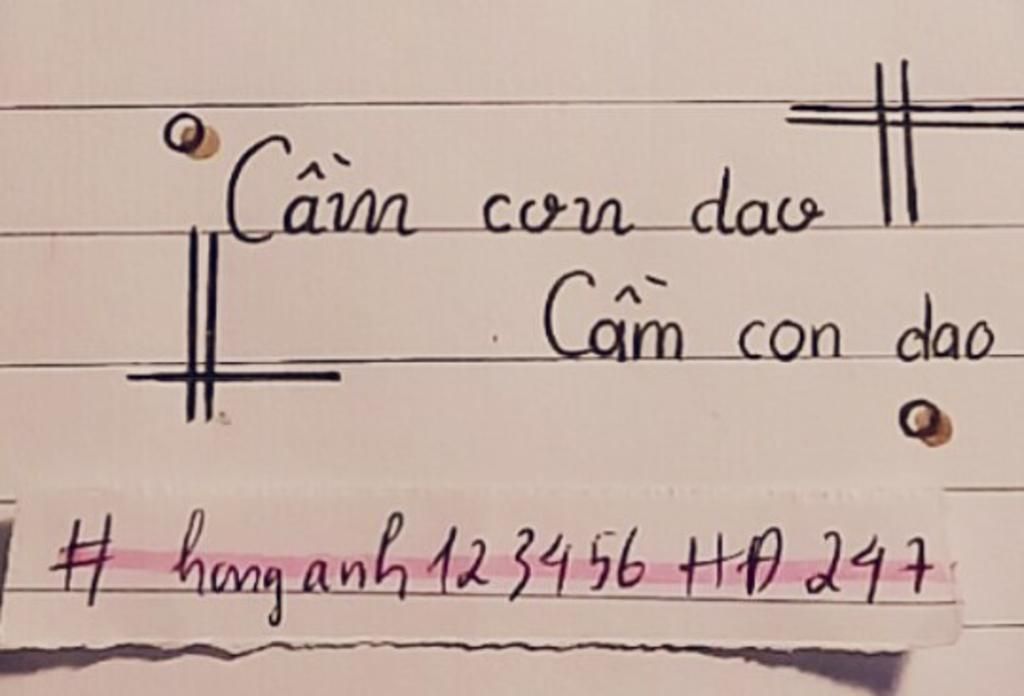 Cầm con dao
Cầm con dao
# honganh123456 HA 247